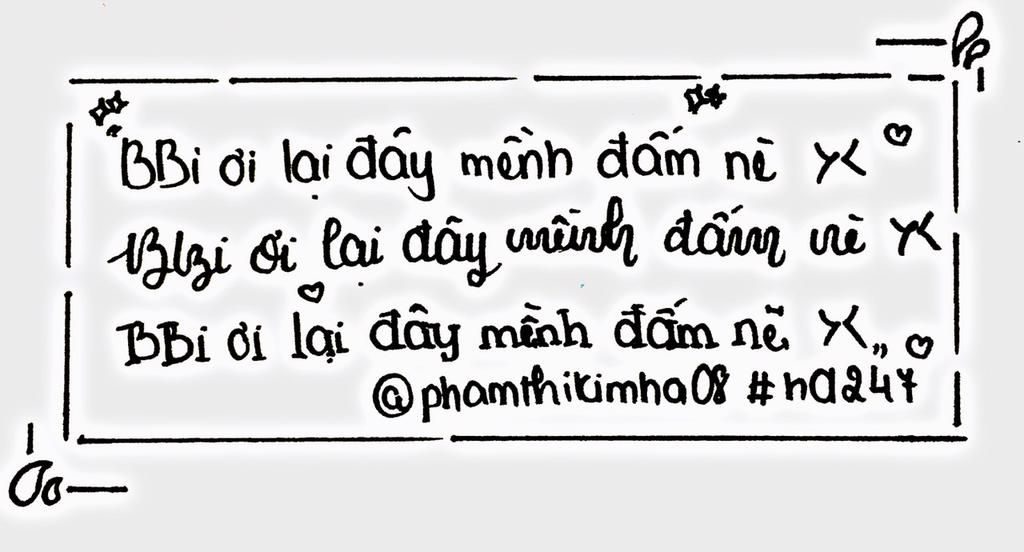 "BBi ơi lại đây mềnh đấm nè X
BBi ơi lại đây mềnh đấm nè X
BBi ơi lại đây mềnh đấm nè X"
@phamthikimha08 #ha247